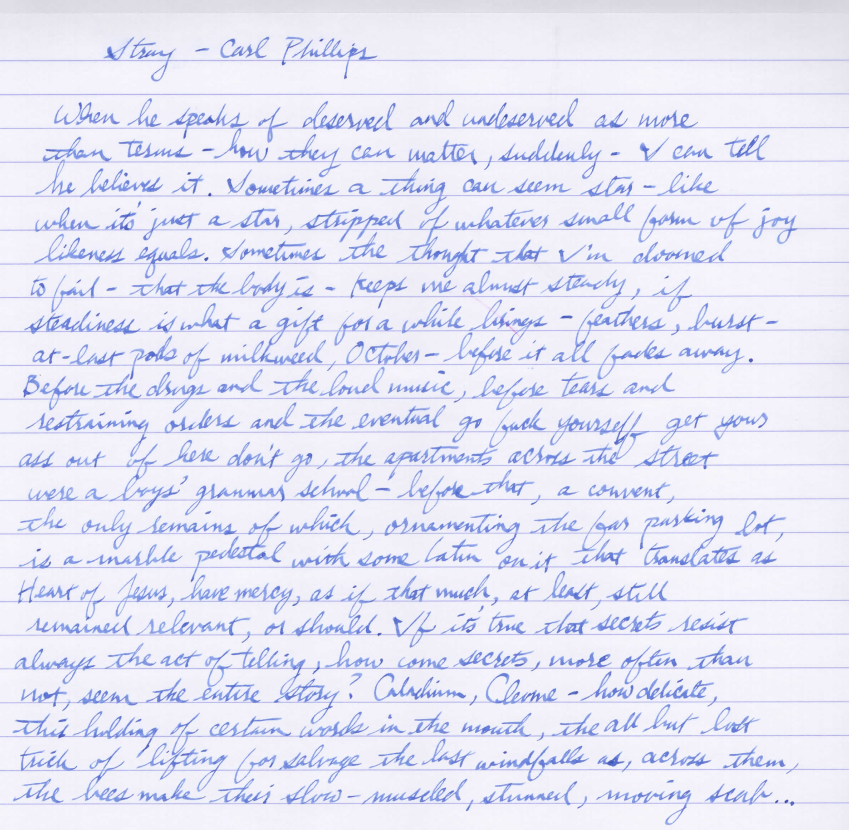 Stray - Carl Phillips
When he speaks of deserved and undeserved as more
than terms - how they can matter, suddenly - I can tell
he believes it. Sometimes a thing can seem star-like
when it's just a star, stripped of whatever small form of joy
likeness equals. Sometimes the thought that I'm doomed
to fail - that the body is - keeps me almost steady, if
steadiness is what a gift for a while brings - feathers, burst-
at-last pods of milkweed, October - before it all fades away.
Before the drugs and the loud music, before tears and
restraining orders and the eventual go fuck yourself get your
ass out of here don't go, the apartments across the street
were a boys' grammar school - before that, a convent,
the only remains of which, ornamenting the far parking lot,
is a marble pedestal with some Latin on it that translates as
Heart of Jesus, have mercy, as if that much, at least, still
remained relevant, or should. If it's true that secrets resist
always the act of telling, how come secrets, more often than
not, seem the entire story? Caladium, Cleome - how delicate,
this holding of certain words in the mouth, the all but lost
trick of lifting for salvage the last windfalls as, across them,
the bees make their slow-muscled, stunned, moving scab...